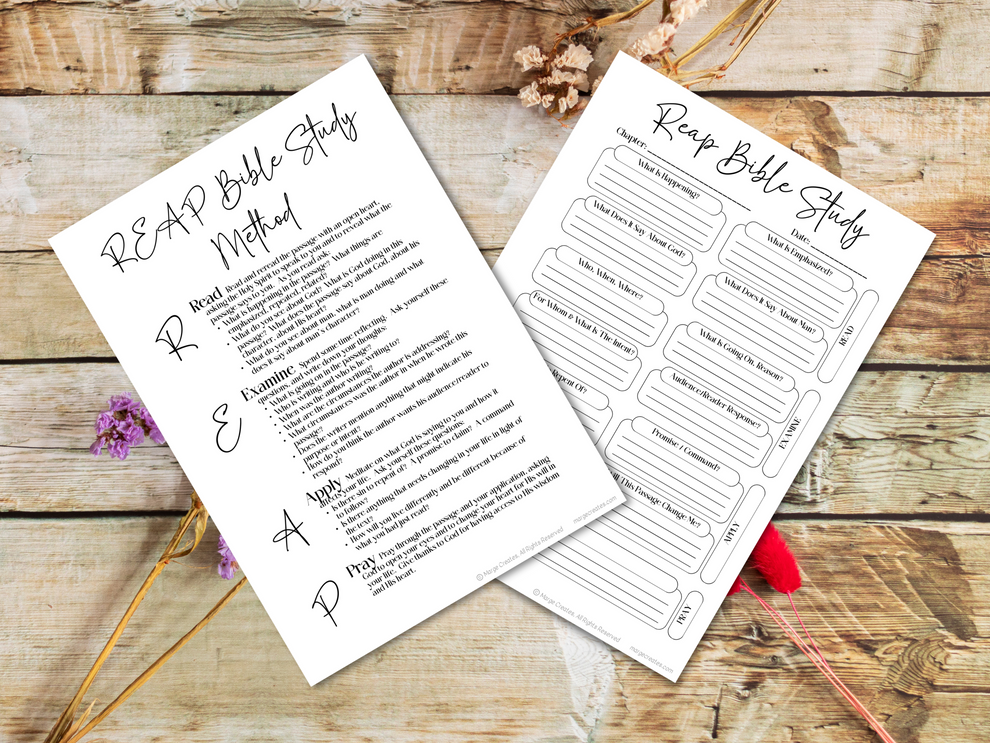 REAP Bible Study
Method
R
Read Read and reread the passage with an open heart,
asking the Holy Spirit to speak to you and to reveal what the
passage says to you. As you read ask:
• What is happening in the passage? What things are
emphasized, repeated, related?
• What do you see about God? What is God doing in this
passage? What does the passage say about God, about his
character, about His heart?
• What do you see about man, what is man doing and what
does it say about man's character?
E
Examine Spend some time reflecting. Ask yourself these
questions, and write down your thoughts:
• What is going on in the passage?
• Who is writing and who is he writing to?
• When was the author writing?
• What are the circumstances the author is addressing?
• What circumstances was the author in when he wrote this
passage?
• Does the writer mention anything that might indicate his
purpose or intent?
• How do you think the author wants his audience/reader to
respond?
A
Apply Meditate on what God is saying to you and how it
life. Ask yourself these questions:
• Is there sin to repent of? A promise to claim? A command
to follow?
• Is there anything that needs changing in your life in light of
the text?
• How will you live differently and be different because of
what you had just read?
P
Pray Pray through the passage and your application, asking
God to open your eyes and to change your heart for His will in
your life. Give thanks to God for having access to His wisdom
and His heart.
© Marge Creates. All Rights Reserved margecreates.com
Reap Bible Study
Chapter:
Date:
What Is Happening?
What Is Emphasized?
What Does It Say About God?
What Does It Say About Man?
READ
Who, When, Where?
What Is Going On, Reason?
For Whom & What Is The Intent?
Audience/Reader Response?
EXAMINE
Repent Of?
Promise / Command?
This Passage Change Me?
APPLY
PRAY
© Marge Creates. All Rights Reserved margecreates.com